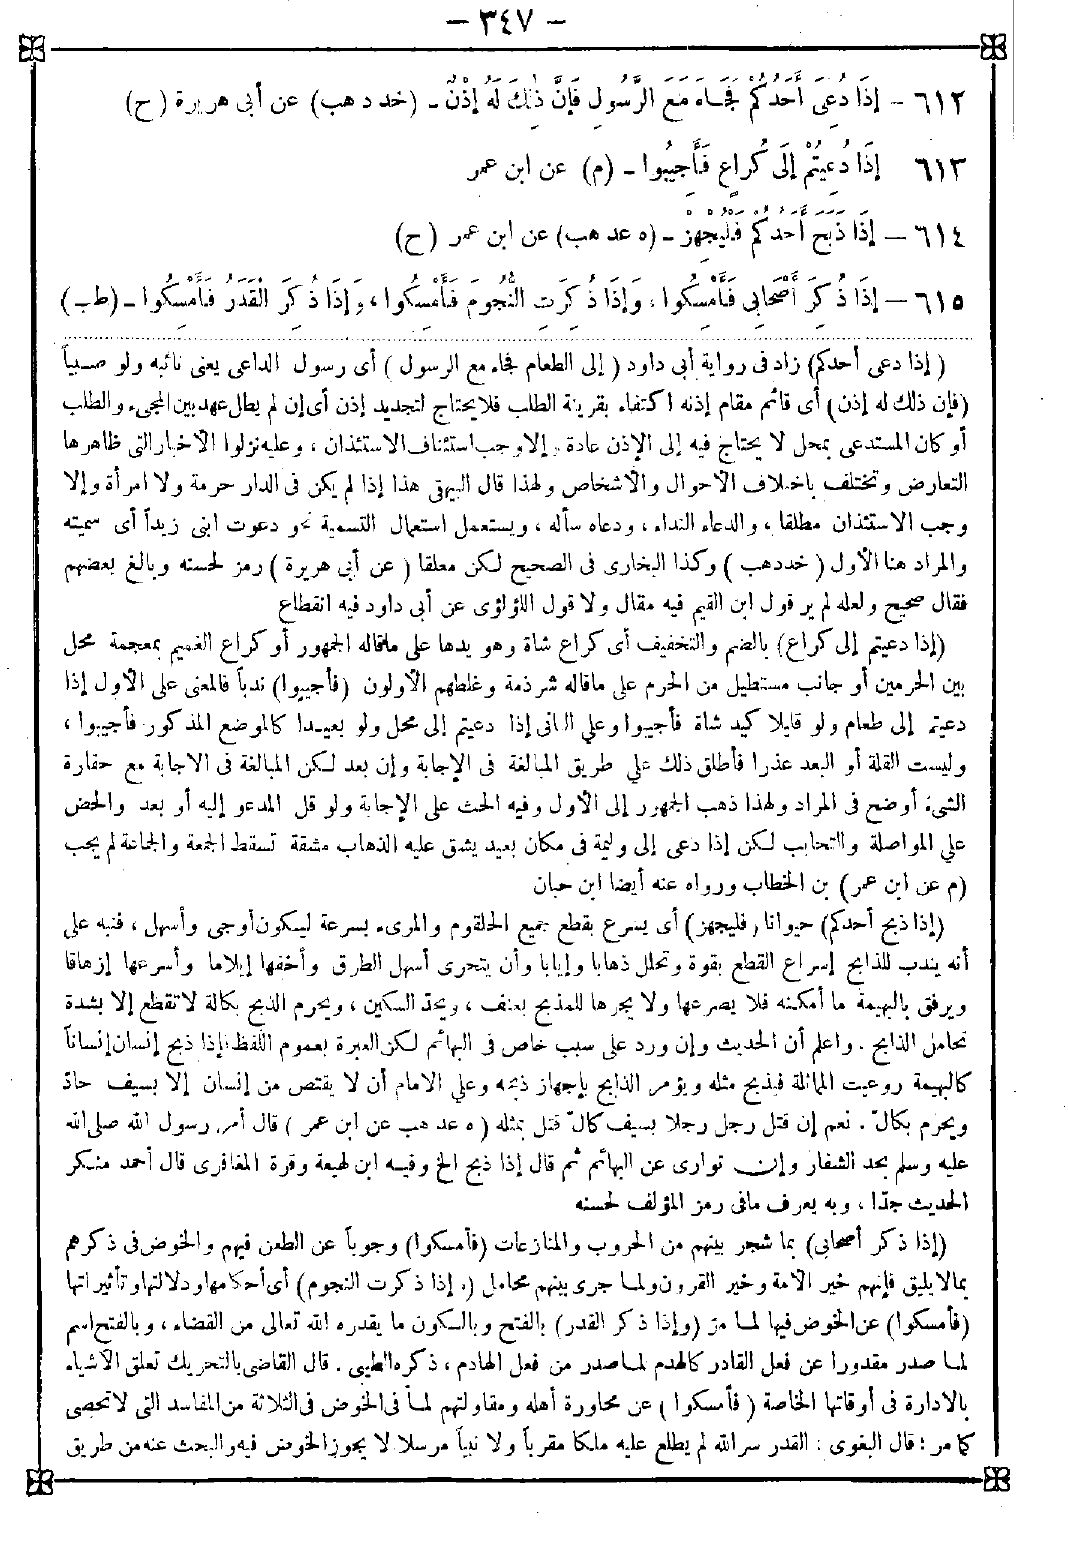 - ٣٤٧ -
٦١٢ - إِذَا دُعِيَ أَحَدُكُمْ فَجَاءَ مَعَ الرَّسُولِ فَإِنَّ ذَٰلِكَ لَهُ إِذْنٌ - (خد د هب) عن أبى هريرة (ح)
٦١٣ إِذَا دُعِيتُمْ إِلَى كُرَاعٍ فَأَجِيبُوا - (م) عن ابن عمر
٦١٤ - إِذَا ذَبَحَ أَحَدُكُمْ فَلْيُجْهِزْ - (ه عد هب) عن ابن عمر (ح)
٦١٥ - إِذَا ذُكِرَ أَصْحَابِى فَأَمْسِكُوا، وَإِذَا ذُكِرَتِ النُّجُومُ فَأَمْسِكُوا، وَإِذَا ذُكِرَ الْقَدَرُ فَأَمْسِكُوا - (طب)
(إذا دعى أحدكم) زاد فى رواية أبى داود (إلى الطعام فجاء مع الرسول) أى رسول الداعى يعنى نائبه ولو صبياً
(فإن ذلك له إذن) أى قائم مقام إذنه اكتفاء بقرينة الطلب فلا يحتاج لتجديد إذن أى إن لم يطل عهد بين المجىء والطلب
أو كان المستدعى بمحل لا يحتاج فيه إلى الإذن عادة، وإلا وجب استئناف الاستئذان، وعليه نزلوا الأخبار التى ظاهرها
التعارض وتختلف باختلاف الأحوال والأشخاص ولهذا قال البيهقى هذا إذا لم يكن فى الدار حرمة ولا امرأة وإلا
وجب الاستئذان مطلقا، والدعاء النداء، ودعاه سأله، ويستعمل استعمال التسمية نحو دعوت ابنى زيداً أى سميته
والمراد هنا الأول (خد د هب) وكذا البخارى فى الصحيح لكن معلقا (عن أبى هريرة) رمز لحسنه وبالغ بعضهم
فقال صحيح ولعله لم ير قول ابن القيم فيه مقال ولا قول اللؤلؤى عن أبى داود فيه انقطاع
(إذا دعيتم إلى كراع) بالضم والتخفيف أى كراع شاة وهو يدها على ماقاله الجمهور أو كراع الغميم بمعجمة محل
بين الحرمين أو جانب مستطيل من الحرم على ماقاله شرذمة وغلطهم الأولون (فأجيبوا) ندباً فالمعنى على الأول إذا
دعيتم إلى طعام ولو قليلا كيد شاة فأجيبوا وعلى الثانى إذا دعيتم إلى محل ولو بعيدا كالموضع المذكور فأجيبوا،
وليست القلة أو البعد عذرا فأطلق ذلك على طريق المبالغة فى الإجابة وإن بعد لكن المبالغة فى الاجابة مع حقارة
الشىء أوضح فى المراد ولهذا ذهب الجمهور إلى الأول وفيه الحث على الإجابة ولو قل المدعو إليه أو بعد والحض
على المواصلة والتحابب لكن إذا دعى إلى وليمة فى مكان بعيد يشق عليه الذهاب مشقة تسقط الجمعة والجماعة لم يجب
(م عن ابن عمر) بن الخطاب ورواه عنه أيضا ابن حبان
(إذا ذبح أحدكم) حيوانا (فليجهز) أى يسرع بقطع جميع الحلقوم والمرىء بسرعة ليكون أوجى وأسهل، فنبه على
أنه يندب للذابح إسراع القطع بقوة وتحامل ذهابا وإيابا وأن يتحرى أسهل الطرق وأخفها إيلاما وأسرعها إزهاقا
ويرفق بالبهيمة ما أمكنه فلا يصرعها ولا يجرها للمذبح بعنف، ويحد السكين، ويحرم الذبح بكالة لا تقطع إلا بشدة
تحامل الذابح. واعلم أن الحديث وإن ورد على سبب خاص فى البهائم لكن العبرة بعموم اللفظ فإذا ذبح إنسان إنساناً
كالبهيمة روعيت المماثلة فيذبح مثله ويؤمر الذابح بإجهاز ذبحه وعلى الامام أن لا يقتص من إنسان إلا بسيف حادّ
ويحرم بكالّ. نعم إن قتل رجل رجلا بسيف كالّ قتل بمثله (ه عد هب عن ابن عمر) قال أمر رسول الله صلى الله
عليه وسلم بحد الشفار وإن توارى عن البهائم ثم قال إذا ذبح الخ وفيه ابن لهيعة وقرة المغافرى قال أحمد منكر
الحديث جدّا، وبه يعرف مافى رمز المؤلف لحسنه
(إذا ذكر أصحابى) بما شجر بينهم من الحروب والمنازعات (فأمسكوا) وجوباً عن الطعن فيهم والخوض فى ذكرهم
بمالا يليق فإنهم خير الأمة وخير القرون ولما جرى بينهم محامل (و إذا ذكرت النجوم) أى أحكامها ودلالتها وتأثيراتها
(فأمسكوا) عن الخوض فيها لما مرّ (وإذا ذكر القدر) بالفتح وبالسكون ما يقدره الله تعالى من القضاء، وبالفتح اسم
لما صدر مقدورا عن فعل القادر كالهدم لما صدر من فعل الهادم، ذكره الطيبى. قال القاضى بالتحريك تعلق الأشياء
بالادارة فى أوقاتها الخاصة (فأمسكوا) عن محاورة أهله ومقاولتهم لما فى الخوض فى الثلاثة من المفاسد التى لا تحصى
كما مر: قال البغوى: القدر سر الله لم يطلع عليه ملكا مقرباً ولا نبياً مرسلا لا يجوز الخوض فيه والبحث عنه من طريق